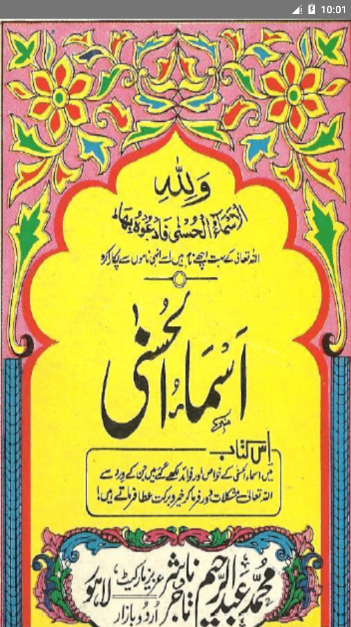 10:01
وَلِلّٰهِ
الْاَسْمَآءُ الْحُسْنٰى فَادْعُوْهُ بِهَا
اللہ تعالیٰ کے بہت اچھے نام ہیں اسے انہی ناموں سے پکارا کرو
اَسْمَاءُ الْحُسْنٰی
اِس کتاب
میں اسماء الحسنیٰ کے خواص اور فوائد لکھے گئے ہیں جن کے ورد سے
اللہ تعالیٰ مشکلات دور فرما کر خیر و برکت عطا فرماتے ہیں!
محمد عبد الرحیم ناشر تاجر عزیز مارکیٹ اردو بازار لاہور